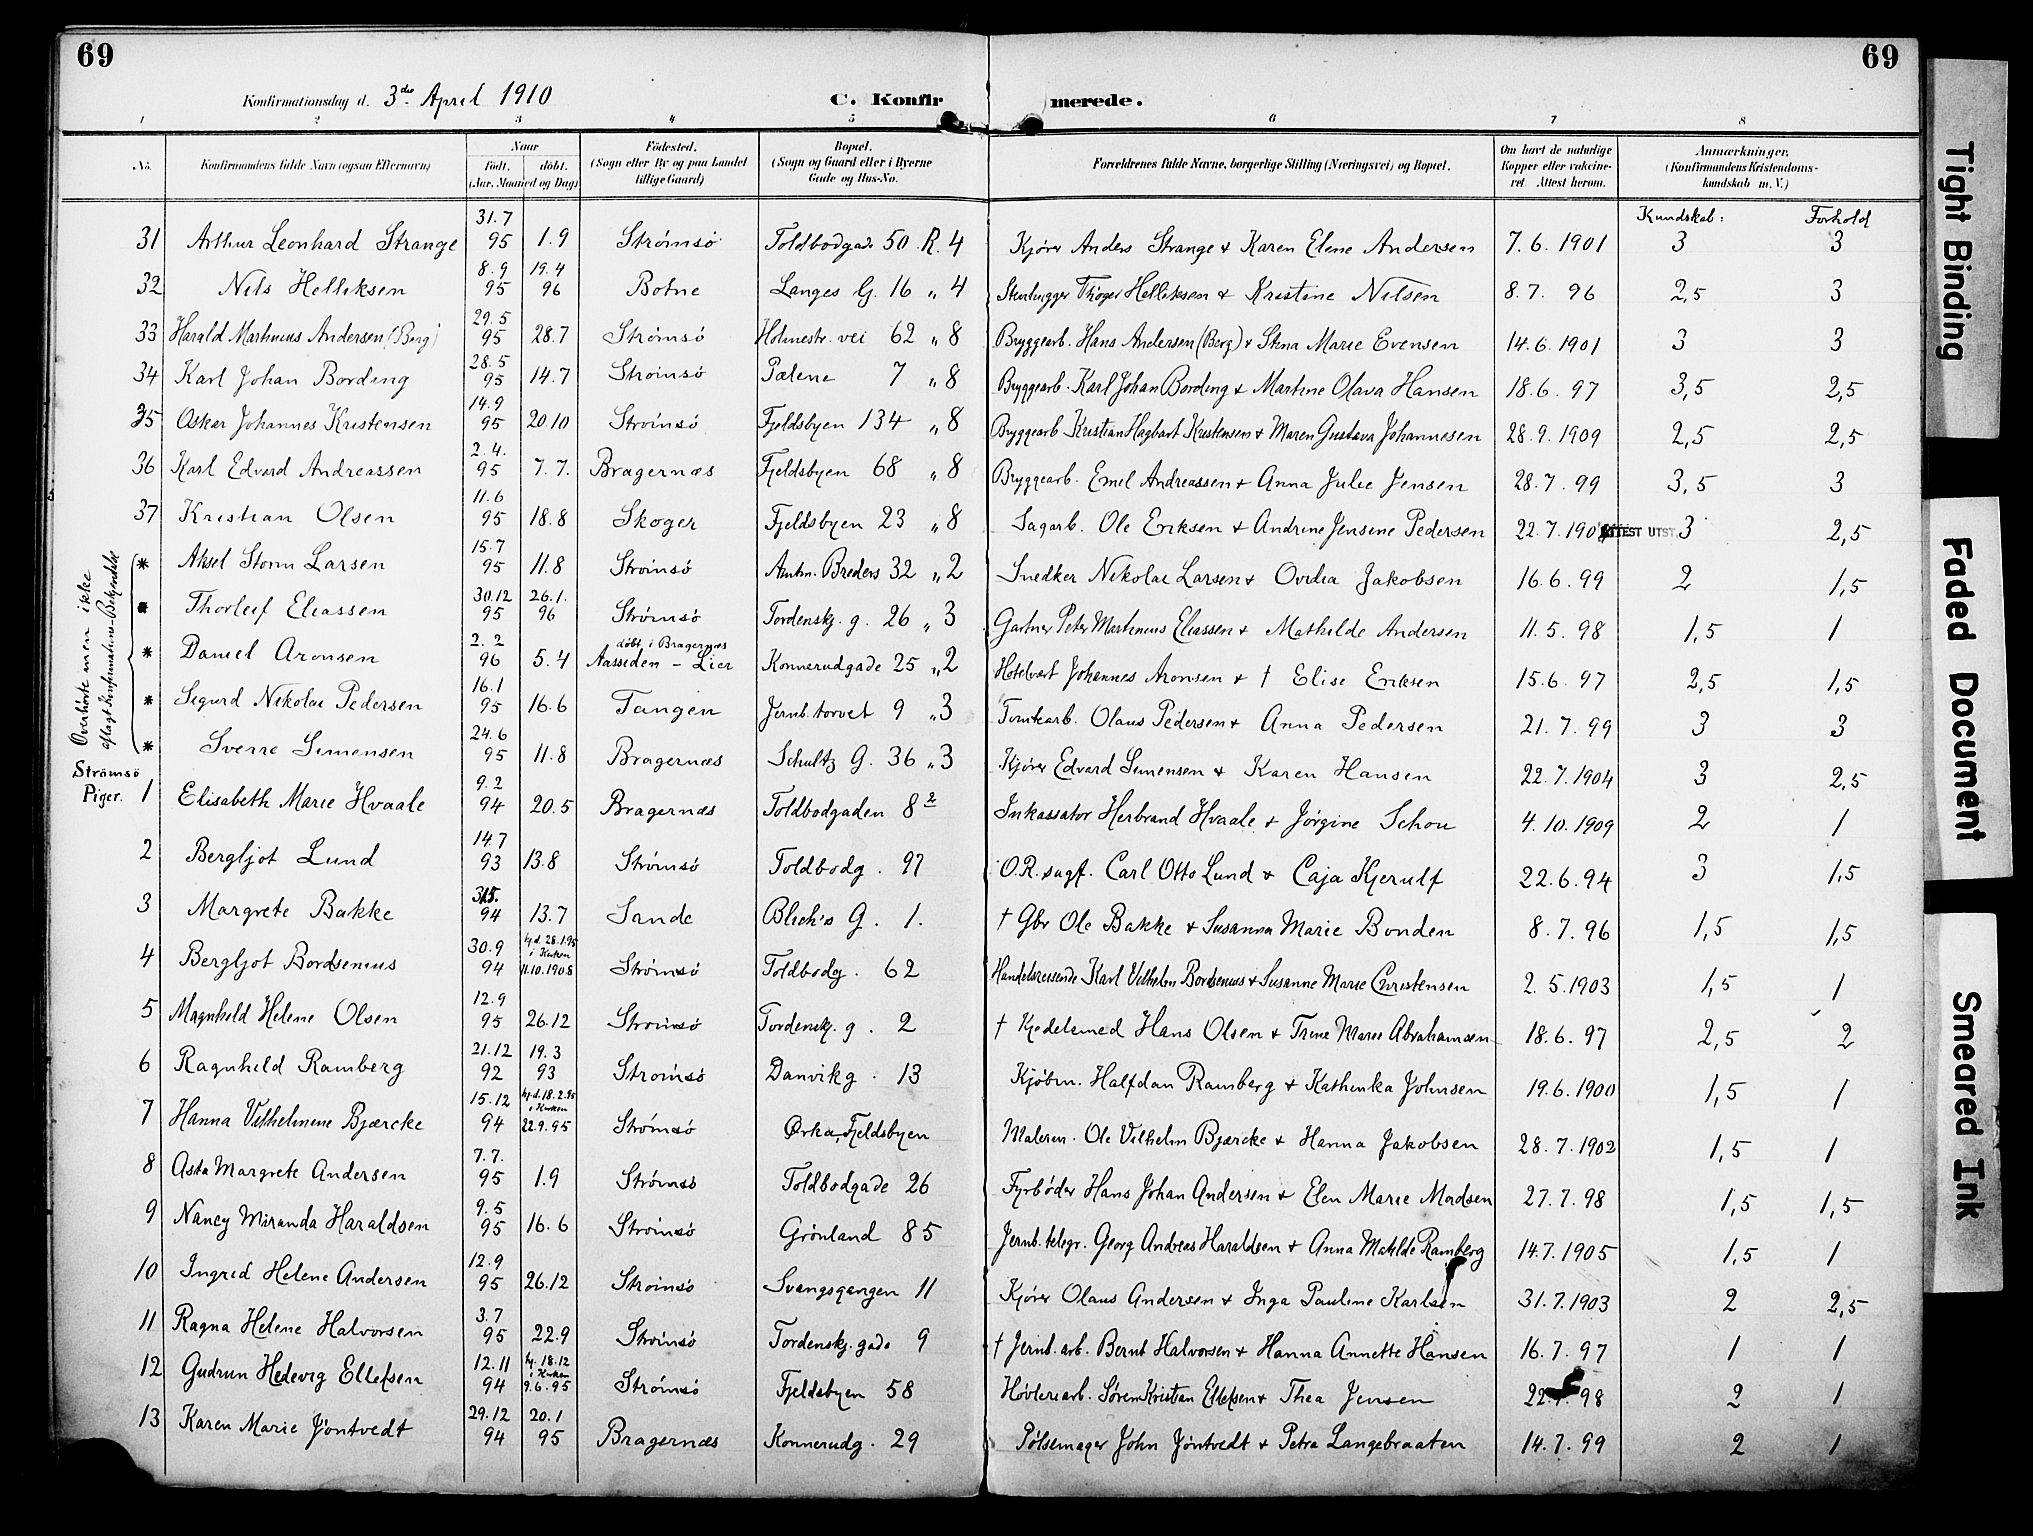 69
69
Konfirmationsdag d. 3die April 1910
C. Konfirmerede.
1 2 3 4 5 6 7 8
No. | Konfirmandens fulde Navn (ogsaa Efternavn) | Naar født. døbt. (Aar, Maaned og Dag) | Fødested. (Sogn eller By og paa Landet tillige Gaard) | Bopæl. (Sogn og Gaard eller i Byerne Gade og Hus-No. | Forældrenes fulde Navne, borgerlige Stilling (Næringsvei) og Bopæl. | Om havt de naturlige Kopper eller vakcineret. Attest herom. | Anmærkninger. (Konfirmandens Kristendomskundskab m. V.)
Kundskab: Forhold
31 Arthur Leonhard Strange 31.7 95 1.9 Strømsø Toldbodgade 50 R. 4 Kjører Anders Strange & Karen Elene Andersen 7.6.1901 3 3
32 Nils Helliksen 8.9 95 19.4 96 Botne Langes G. 16 „ 4 Stenhugger Helliksen & Kristine Nilsen 8.7. 96 2,5 3
33 Harald Martinius Andersen (Berg) 29.5 95 28.7 Strømsø Holmestr. vei 62 „ 8 Bryggearb. Hans Andersen (Berg) & Stina Marie Evensen 14.6.1901 3 3
34 Karl Johan Bording 28.5 95 14.7 Strømsø Pælene 7 „ 8 Bryggearb. Karl Johan Bording & Martine Olava Hansen 18.6. 97 3,5 2,5
35 Oskar Johannes Kristensen 14.9 95 20.10 Strømsø Fjeldsbyen 134 „ 8 Bryggearb Kristian Hagbart Kristensen & Maren Gustava Johannesen 28.9.1909 2,5 2,5
36 Karl Edvard Andreassen 2.4. 95 7.7. Bragernæs Fjeldsbyen 68 „ 8 Bryggearb. Emil Andreassen & Anna Julie Jensen 28.7.99 3,5 3
37 Kristian Olsen 11.6 95 18.8 Skoger Fjeldsbyen 23 „ 8 Sagarb. Ole Eriksen & Andrine Jensine Pedersen 22.7. ATTEST UTST. 3 2,5
Overhørte men ikke
aflagt Konfirmations-Bekjendelse
* Aksel Storm Larsen 15.7 95 11.8 Strømsø Amtm. Breders 32 „ 2 Snedker Nikolai Larsen & Ovidia Jakobsen 16.6.99 2 1,5
* Thorleif Eliassen 30.12 95 26.1. 96 Strømsø Tordenskj. g. 26 „ 3 Gartner Peter Martinius Eliassen & Mathilde Andersen 11.5.98 1,5 1
* Daniel Aronsen 2.2 96 5.4 døbt i Bragernæs Aassiden - Lier Konnerudgade 25 „ 2 Hotelvært Johannes Aronsen & † Elise Eriksen 15.6.97 2,5 1,5
* Sigurd Nikolai Pedersen 16.1 95 16.6 Tangen Jernb. torvet 9 „ 3 Tomtearb. Olaus Pedersen & Anna Pedersen 21.7.99 3 3
* Sverre Simensen 24.6 95 11.8 Bragernæs Schultz G. 36 „ 3 Kjører Edvard Simensen & Karen Hansen 22.7.1904 3 2,5
Strømsø
Piger. 1 Elisabeth Marie Hvaale 9.2 94 20.5 Bragernæs Toldbodgaden 8 2 Inkassator Herbrand Hvaale & Jørgine Schou 4.10.1909 2 1
2 Bergljot Lund 14.7 93 13.8 Strømsø Toldbodg. 97 O.R. sagf. Carl Otto Lund & Caja Kjerulf 22.6.94 3 1,5
3 Margrete Bakke 94 13.7 Sande Blich's G. 1. † Gbr Ole Bakke & Susanna Marie Bonden 8.7.96 1,5 1,5
4 Bergljot Bordsenius 30.9 94 hj.d. 28.1.95 i Kirken 11.10.1908 Strømsø Toldbodg. 62 Handelsreisende Karl Vilhelm Bordsenius & Susanne Marie Christensen 2.5.1903 1,5 1
5 Magnhild Helene Olsen 12.9 95 26.12 Strømsø Tordenskj. g. 2 † Kjedelsmed Hans Olsen & Trine Marie Abrahamsen 18.6.97 2,5 2
6 Ragnhild Ramberg 21.12 92 19.3 93 Strømsø Danvikg. 13 Kjøbm. Halfdan Ramberg & Kathinka Johnsen 19.6.1900 1,5 1
7 Hanna Vilhelmine Bjærcke 15.12 94 hj.d. 18.2.95 i Kirken 22.9.95 Strømsø Ørka, Fjeldsbyen Malerm. Ole Vilhelm Bjærcke & Hanna Jakobsen 28.7.1902 1,5 1
8 Asta Margrete Andersen 7.7. 95 1.9 Strømsø Toldbodgade 26 Fyrbøder Hans Johan Andersen & Elen Marie Madsen 27.7.98 1,5 1,5
9 Nancy Miranda Haraldsen 9.5 95 16.6 Strømsø Grønland 85 Jernb. telegr. Georg Andreas Haraldsen & Anna Matilde Ramberg 14.7.1905 1,5 1
10 Ingrid Helene Andersen 12.9 95 26.12 Strømsø Svangsgangen 11 Kjører Olaus Andersen & Inga Pauline Karlsen 31.7.1903 2 2,5
11 Ragna Helene Halvorsen 3.7 95 22.9 Strømsø Tordenskj. gade 9 † Jernb. arb. Bernt Halvorsen & Hanna Annette Hansen 16.7.97 1 1
12 Gudrun Hedevig Ellefsen 12.11 94 hj. 18.12 i Kirken 9.6.95 Strømsø Fjeldsbyen 58 Høvleriarb. Søren Kristian Ellefsen & Thea Jensen 22.7.98 2 1
13 Karen Marie Jøntvedt 29.12 94 20.1 95 Bragernæs Konnerudg. 29 Pølsemager John Jøntvedt & Petra Langebraaten 14.7.99 2 1
Tight Binding
Faded Document
Smeared Ink